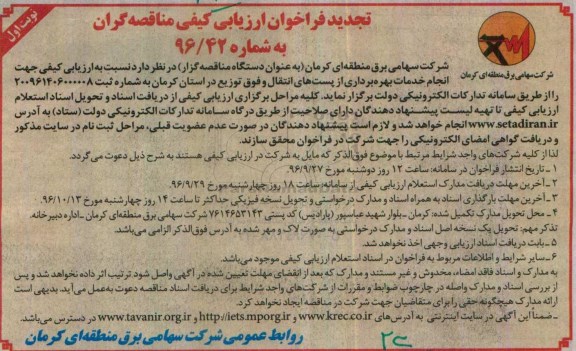 نوبت اول
تجدید فراخوان ارزیابی کیفی مناقصه‌گران
به شماره ۹۶/۴۲
شرکت سهامی برق منطقه‌ای کرمان
شرکت سهامی برق منطقه‌ای کرمان (به عنوان دستگاه مناقصه‌گزار) در نظر دارد نسبت به ارزیابی کیفی جهت
انجام خدمات بهره‌برداری از پست‌های انتقال و فوق توزیع در استان کرمان به شماره ثبت ۲۰۰۹۶۱۴۰۶۰۰۰۰۰۸
را از طریق سامانه تدارکات الکترونیکی دولت برگزار نماید. کلیه مراحل برگزاری ارزیابی کیفی از دریافت اسناد و تحویل اسناد استعلام
ارزیابی کیفی تا تهیه لیست پیشنهاد دهندگان دارای صلاحیت از طریق درگاه سامانه تدارکات الکترونیکی دولت (ستاد) به آدرس
www.setadiran.ir انجام خواهد شد و لازم است پیشنهاد دهندگان در صورت عدم عضویت قبلی، مراحل ثبت نام در سایت مذکور
و دریافت گواهی امضای الکترونیکی را جهت شرکت در فراخوان محقق سازند.
لذا از کلیه شرکت‌های واجد شرایط مرتبط با موضوع فوق‌الذکر که مایل به شرکت در ارزیابی کیفی هستند به شرح ذیل دعوت می‌گردد.
۱ ـ تاریخ انتشار فراخوان در سامانه: ساعت ۱۲ روز دوشنبه مورخ ۹۶/۹/۲۷
۲ ـ آخرین مهلت دریافت مدارک استعلام ارزیابی کیفی از سامانه: ساعت ۱۸ روز چهارشنبه مورخ ۹۶/۹/۲۹
۳ ـ آخرین مهلت بارگذاری اسناد به همراه اسناد و مدارک درخواستی و تحویل نسخه فیزیکی حداکثر تا ساعت ۱۴ روز چهارشنبه مورخ ۹۶/۱۰/۱۳
۴ ـ محل تحویل مدارک تکمیل شده: کرمان ـ بلوار شهید عباسپور (پارادیس) کد پستی ۷۶۱۴۶۵۳۱۴۳ شرکت سهامی برق منطقه‌ای کرمان ـ اداره دبیرخانه.
تذکر مهم: تحویل یک نسخه اصل اسناد و مدارک درخواستی به صورت لاک و مهر شده به آدرس فوق‌الذکر الزامی می‌باشد.
۵ ـ بابت دریافت اسناد ارزیابی وجهی اخذ نخواهد شد.
۶ ـ سایر شرایط و اطلاعات مربوط به فراخوان در اسناد استعلام ارزیابی کیفی موجود می‌باشد.
به مدارک و اسناد فاقد امضاء، مخدوش و غیر مستند و مدارک که بعد از انقضای مهلت تعیین شده در آگهی واصل شود ترتیب اثر داده نخواهد شد و پس
از بررسی اسناد و مدارک واصله در چارچوب ضوابط و مقررات از شرکت‌های واجد شرایط برای دریافت اسناد مناقصه دعوت به‌عمل می‌آید. بدیهی است
ارائه مدارک هیچگونه حقی را برای متقاضیان جهت شرکت در مناقصه ایجاد نخواهد کرد.
ـ ضمناً این آگهی در سایت اینترنتی به آدرس‌های www.krec.co.ir و http://iets.mporg.ir و www.tavanir.org.ir در دسترس می‌باشد.
روابط عمومی شرکت سهامی برق منطقه‌ای کرمان